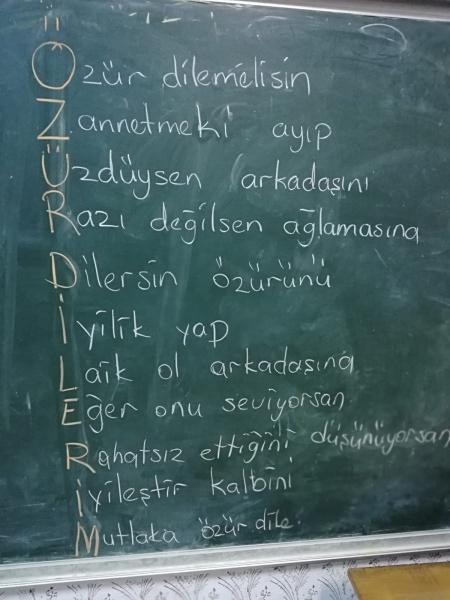 Özür dilemelisin
Zannetmeki ayıp
Üzdüysen arkadaşını
Razı değilsen ağlamasına
Dilersin özürünü
İyilik yap
Laik ol arkadaşına
Eğer onu seviyorsan
Rahatsız ettiğini düşünüyorsan
İyileştir kalbini
Mutlaka özür dile.